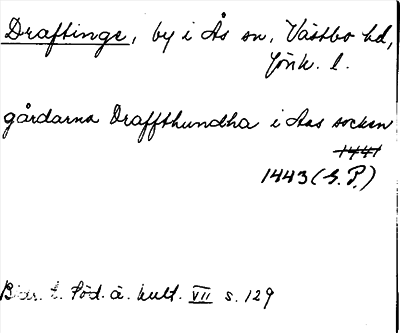 Draftinge, by i Ås sn, Västbo hd,
Jönk. l.
gårdarna Draffthundha i Aas socken
1441
1443 (S. P.)
Bidr. t. Söd. å. kult. VII s. 129